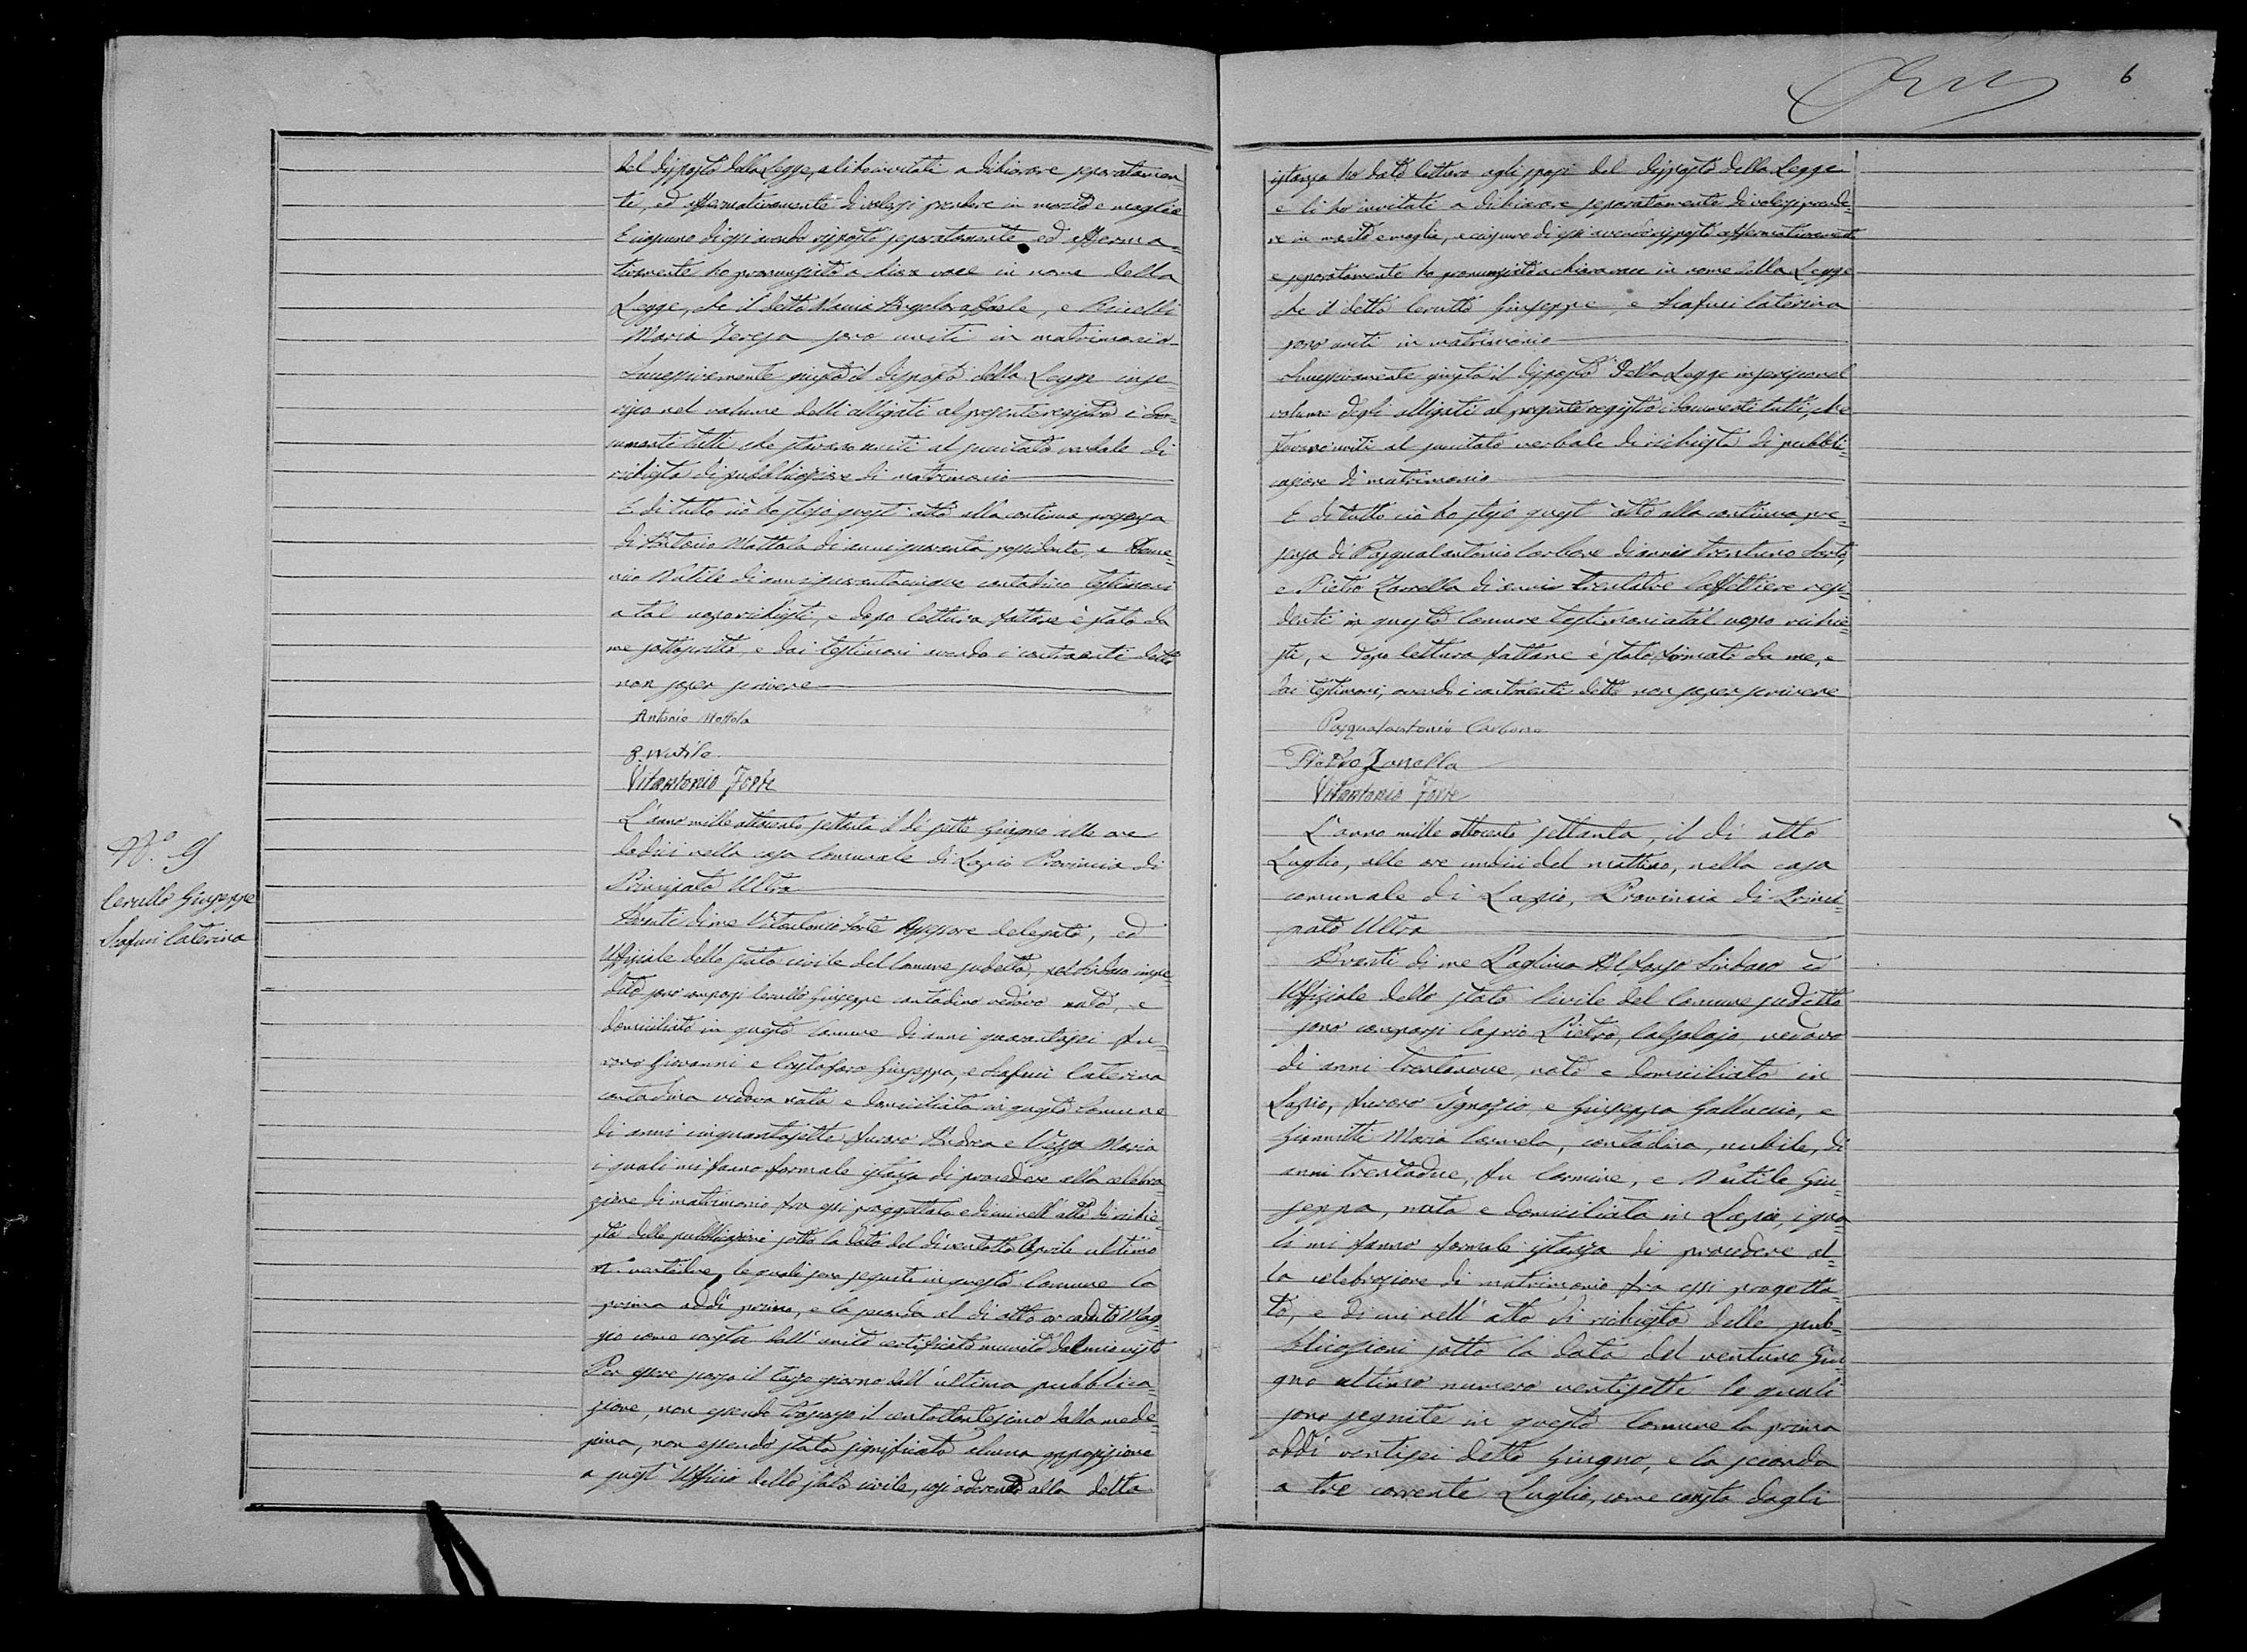 del disposto della Legge, e li ho invitati a dichiarare separatamen-
te, ed affermativamente di volersi prendere in marito e moglie
E ciascuno di essi avendo risposto separatamente ed afferma-
tivamente ho pronunziato a chiara voce in nome della
Legge, che il detto Arcangelo, e
Maria Teresa sono uniti in matrimonio
Successivamente giusta il disposto della Legge inse-
risco nel volume delli alligati al presente registro i do-
cumenti tutti che stavano uniti al precitato verbale di
richiesta di pubblicazione di matrimonio
E di tutto ciò ho steso quest'atto alla continua presenza
di Antonio Mattola di anni quaranta possidente, e Dome-
nico Nutile di anni quarantacinque contadino testimoni
a tal uopo richiesti, e dopo lettura fattane è stato da
me sottoscritto, e dai testimoni avendo i contraenti detto
non saper scrivere
Antonio Mattola
D. Nutile
Vitantonio Forte
N.° 9
Cerullo Giuseppe
Scafuri Caterina
L'anno mille ottocento settanta il dì sette Giugno alle ore
dodici nella casa Comunale di Lapio Provincia di
Principato Ultra
Avanti di me Vitantonio Forte Assessore delegato, ed
Uffiziale dello stato civile del Comune sudetto, pel Sindaco impe-
dito sono comparsi Cerullo Giuseppe contadino vedovo nato, e
domiciliato in questo Comune di anni quarantasei fu-
rono Giovanni e Cristofaro Giuseppa, e Scafuri Caterina
contadina vedova nata e domiciliata in questo Comune
di anni cinquantasette furono Andrea e Vezza Maria
i quali mi fanno formale istanza di procedere alla celebra-
zione di matrimonio fra essi proggettato e di cui nell'atto di richie-
sta delle pubblicazioni sotto la data del dì ventotto Aprile ultimo
N. ventidue, le quali sono seguite in questo Comune la
prima addì primo, e la seconda al dì otto or caduto Mag-
gio come costa dall'unito certificato munito dal mio visto
Per essere passo il terzo giorno dall'ultima pubblica-
zione, non essendo trascorso il centottantesimo dalla mede-
sima, non essendo stata significata alcuna opposizione
a quest'Uffizio dello stato civile, così aderendo alla detta
6
istanza ho dato lettura agli sposi del disposto della Legge
e li ho invitati a dichiarare separatamente di volersi prende-
re in marito e moglie, e ciascuno di essi avendo risposto affermativamente
e separatamente ho pronunziato a chiara voce in nome della Legge
che il detto Cerullo Giuseppe, e Scafuri Caterina
sono uniti in matrimonio
Successivamente giusta il disposto della Legge inserisco nel
volume degli alligati al presente registro i documenti tutti, che
stavano uniti al precitato verbale di richiesta di pubbli-
cazione di matrimonio
E di tutto ciò ho steso quest'atto alla continua pre-
senza di Pasqualantonio Carbone di anni trentuno Sarto,
e Pietro Zarrella di anni trentatre Caffettiere resi-
denti in questo Comune testimoni a tal uopo richie-
sti, e dopo lettura fattane è stato firmato da me, e
dai testimoni, avendo i contraenti detto non saper scrivere
Pasqualantonio Carbone
Pietro Zarrella
Vitantonio Forte
L'anno mille ottocento settanta, il dì otto
Luglio, alle ore undici del mattino, nella casa
comunale di Lapio, Provincia di Princi-
pato Ultra
Avanti di me Alfonso Sindaco ed
Uffiziale dello stato Civile del Comune sudetto
sono comparsi Caprio Pietro, Calzolajo, vedovo
di anni trentanove, nato e domiciliato in
Lapio, furono Ignazio e Giuseppa Galluccio, e
Giannitti Maria Carmela, contadina, nubile, di
anni trentadue, fu Carmine, e Nutile Giu-
seppa, nata e domiciliata in Lapio, i qua-
li mi fanno formale istanza di procedere al-
la celebrazione di matrimonio fra essi progetta-
to, e di cui nell'atto di richiesta delle pub-
blicazioni sotto la data del ventuno Giu-
gno ultimo numero ventisette le quali
sono seguite in questo Comune la prima
addì ventisei detto Giugno, e la seconda
a tre corrente Luglio, come consta dagli